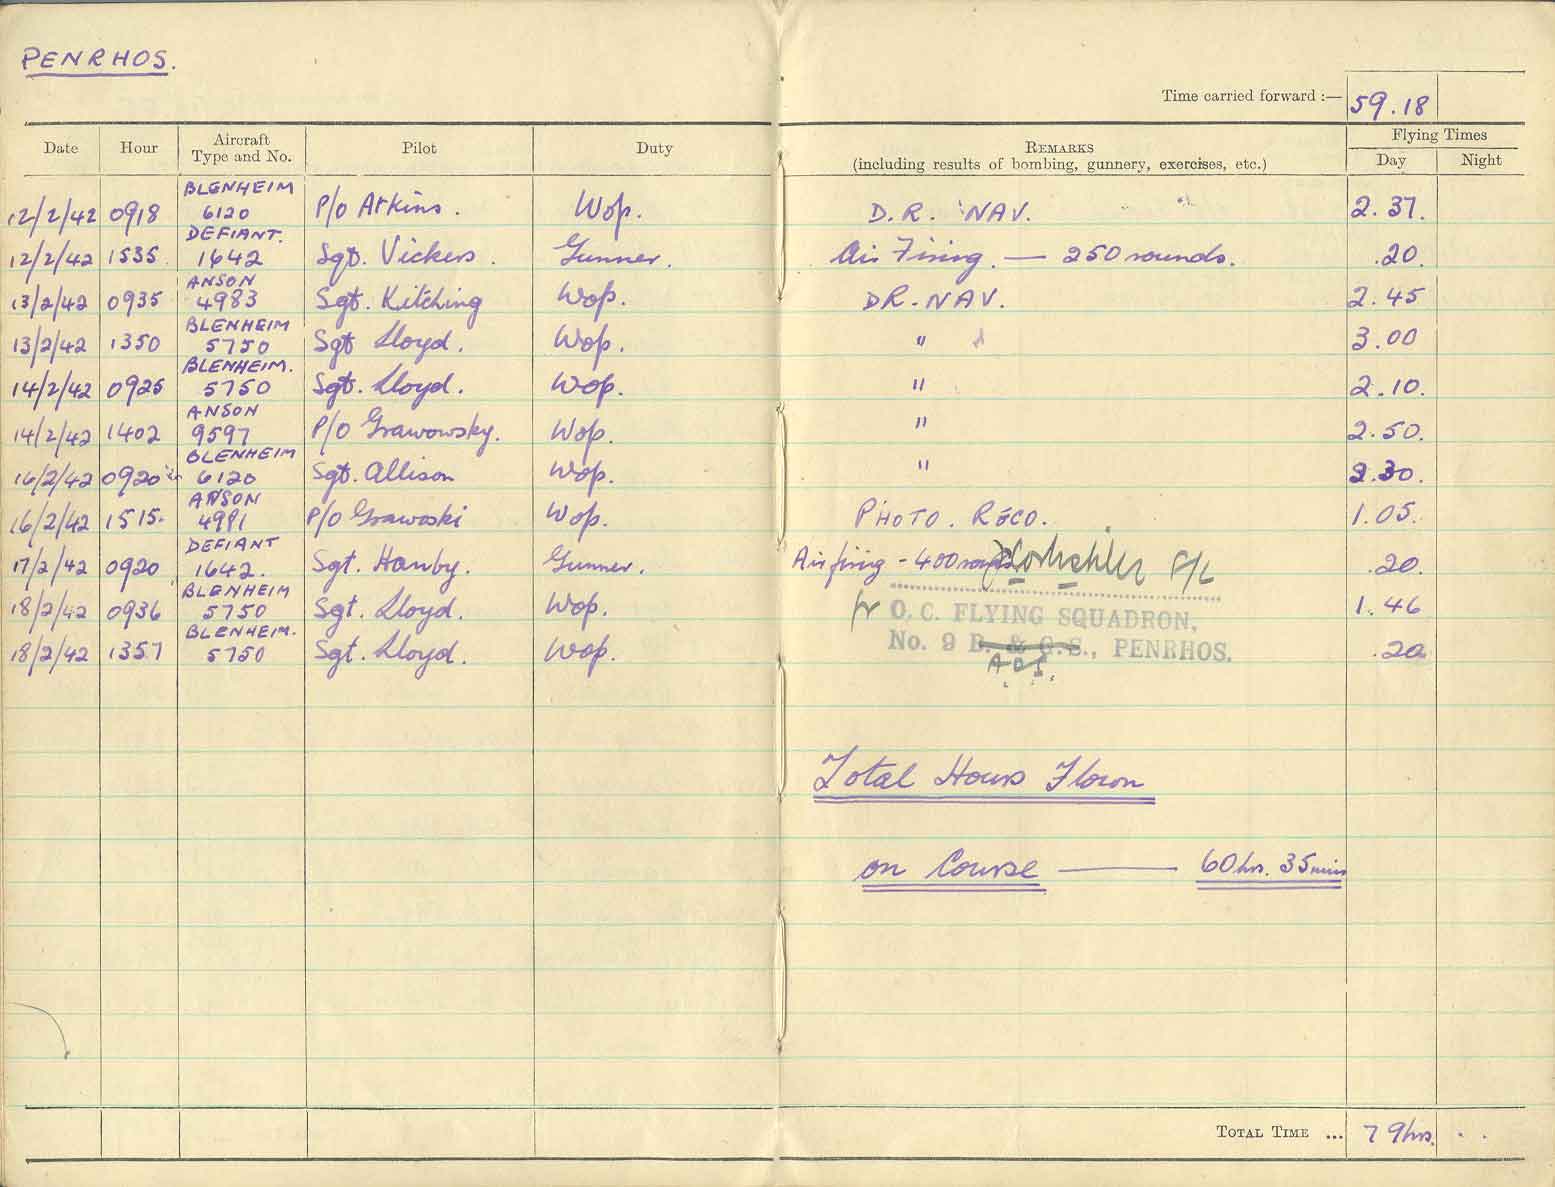 PENRHOS.
Time carried forward :— 59.18
Date Hour Aircraft Type and No. Pilot Duty REMARKS (including results of bombing, gunnery, exercises, etc.) Flying Times Day Night
12/2/42 0918 BLENHEIM 6120 P/O Atkins. Wop. D.R. NAV. 2.37.
12/2/42 1535 DEFIANT. 1642 Sgt. Vickers. Gunner. Air Firing. — 250 rounds. .20.
13/2/42 0935 ANSON 4983 Sgt. Kitching Wop. DR. NAV. 2.45
13/2/42 1350 BLENHEIM 5750 Sgt Lloyd. Wop. " 3.00
14/2/42 0925 BLENHEIM. 5750 Sgt. Lloyd. Wop. " 2.10.
14/2/42 1402 ANSON 9597 P/O Grawowsky. Wop. " 2.50.
16/2/42 0920 BLENHEIM 6120 Sgt. Allison Wop. " 2.30.
16/2/42 1515. ANSON 4991 P/O Grawoski Wop. PHOTO. RECO. 1.05.
17/2/42 0920 DEFIANT 1642. Sgt. Hanby. Gunner. Air firing - 400 F/L .20.
18/2/42 0936 BLENHEIM 5750 Sgt. Lloyd. Wop. for O.C. FLYING SQUADRON, 1.46
18/2/42 1357 BLENHEIM. 5750 Sgt. Lloyd. Wop. No. 9 B. & G.S., PENRHOS. .20
Total Hours Flown
on Course — 60 hrs. 35 mins
TOTAL TIME ... 79 hrs. . .